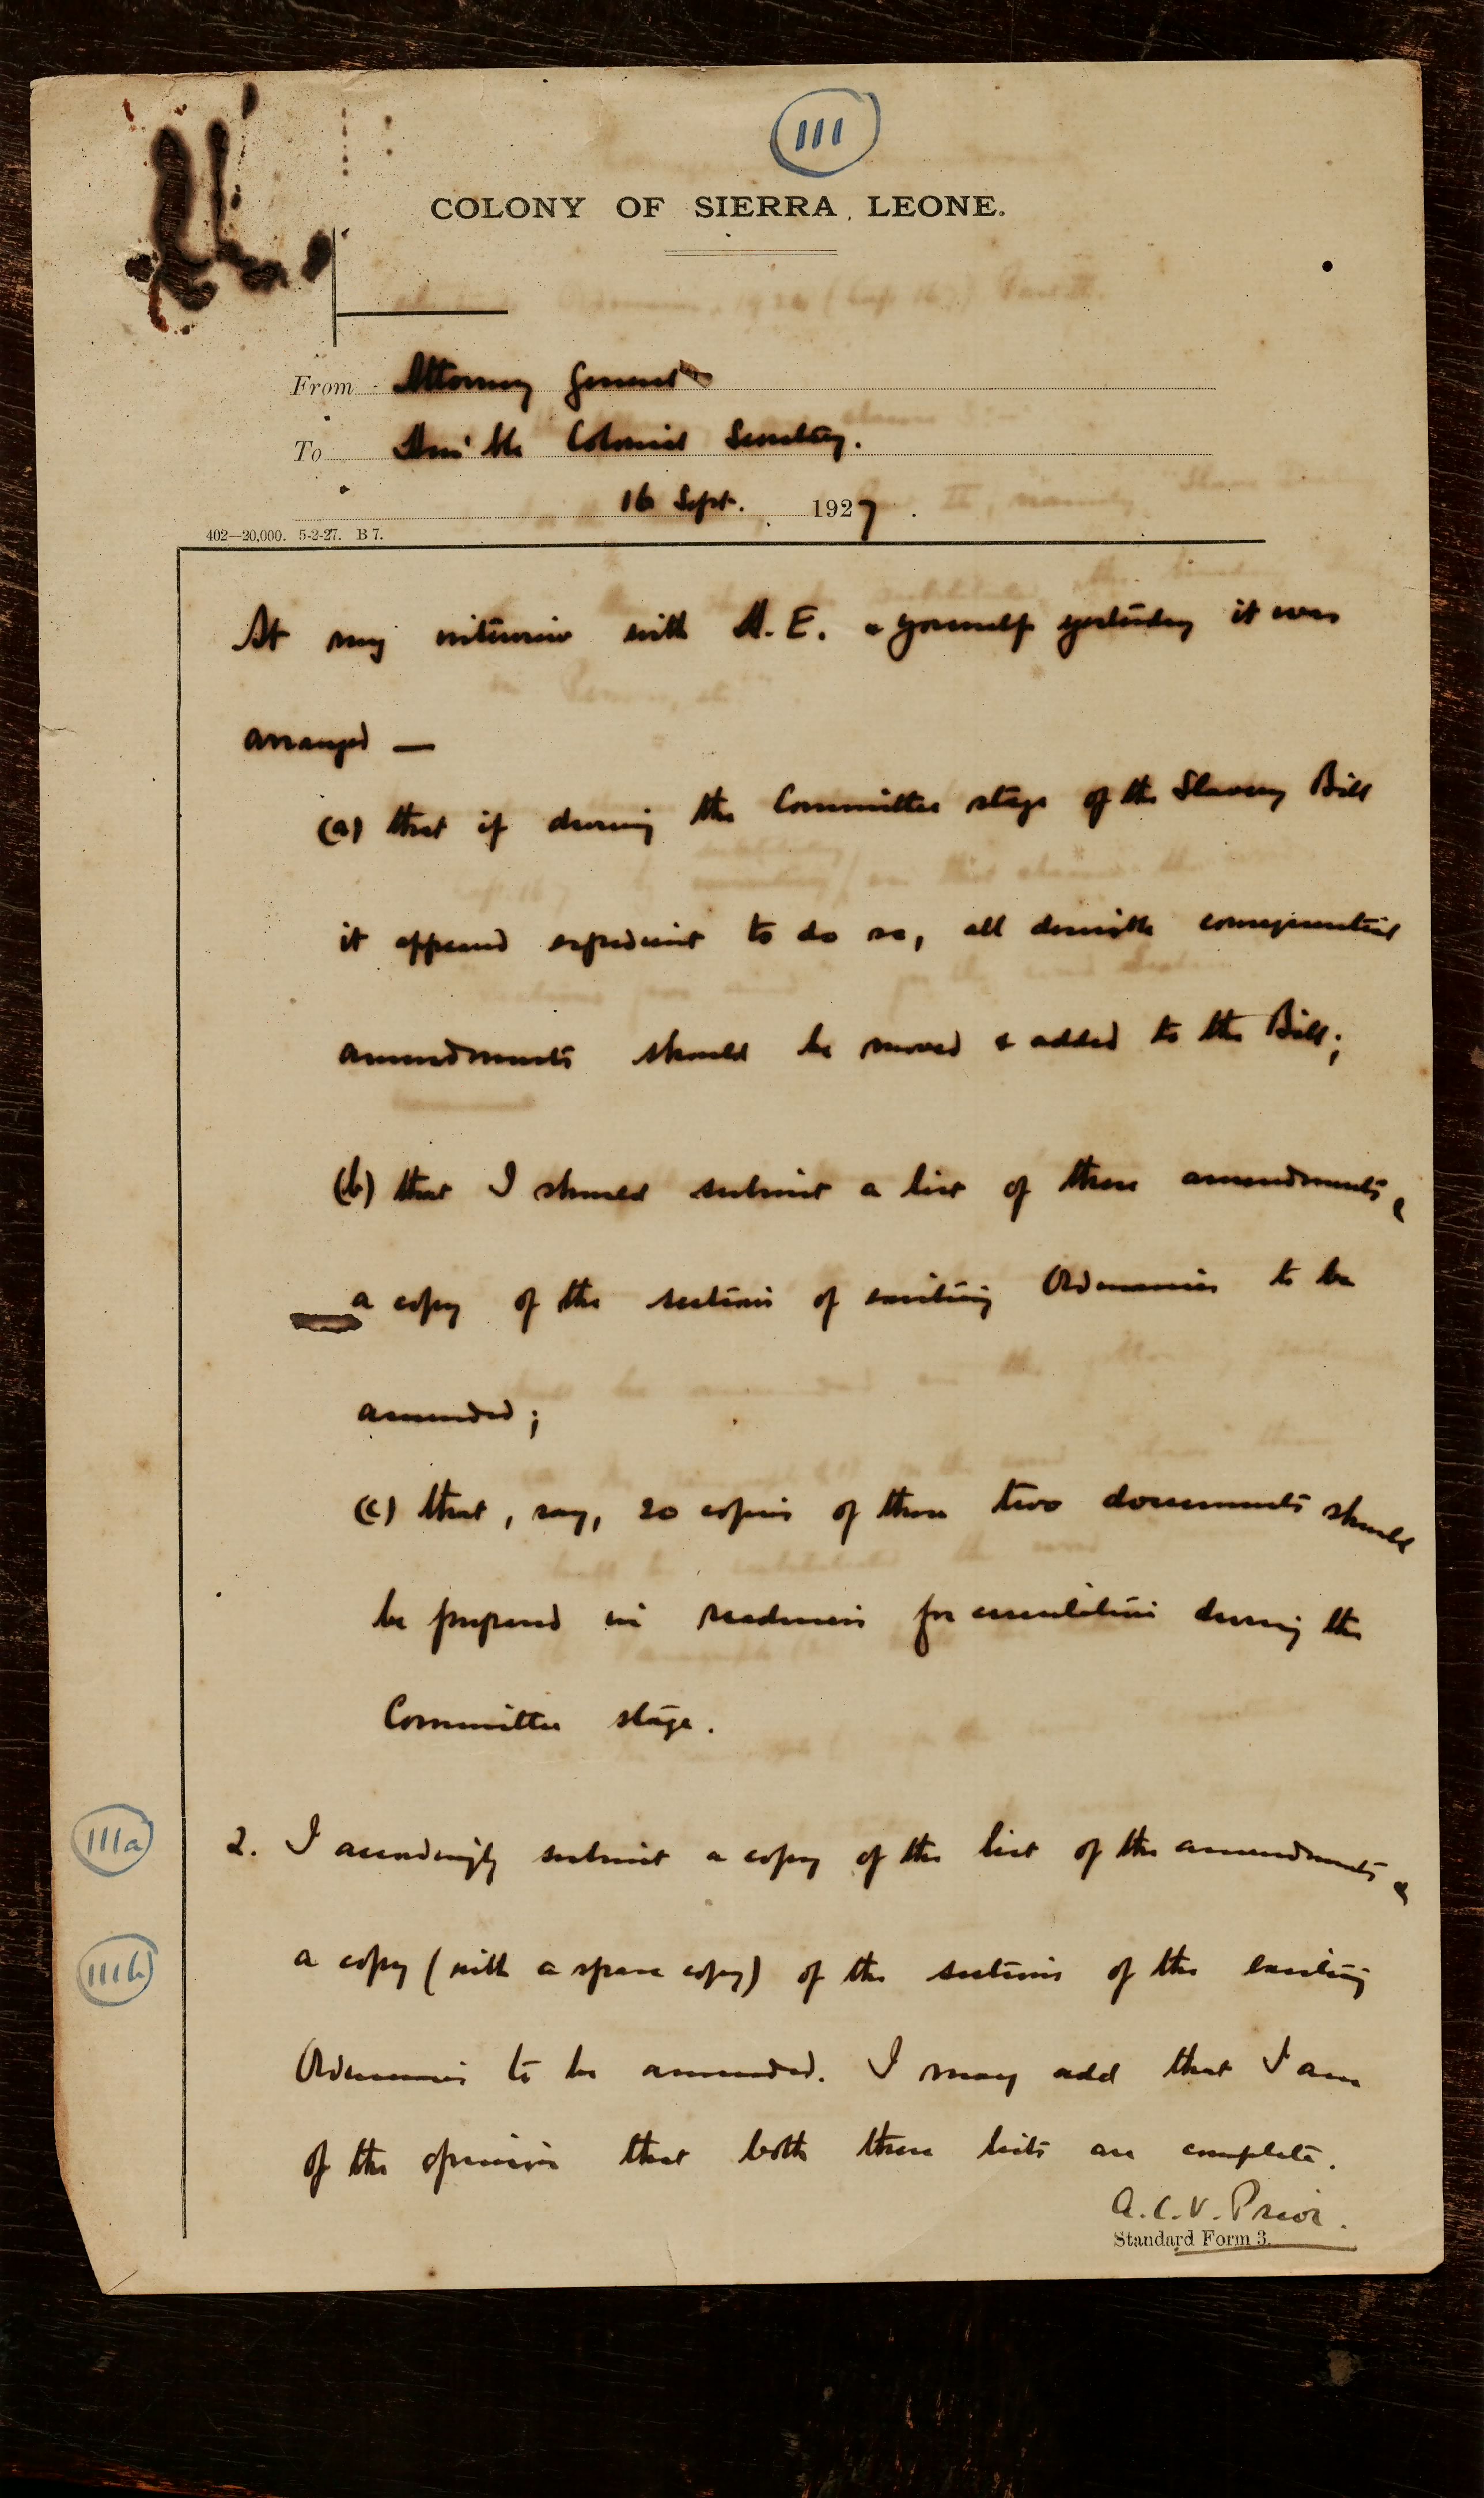 111
COLONY OF SIERRA LEONE.
From Attorney General
To Hon'ble Colonial Secretary.
16 Sept. 1927.
402—20,000. 5-2-27. B 7.
At my interview with H.E. & yourself yesterday it was
arranged —
(a) that if during the Committee stage of the Slavery Bill
it appeared expedient to do so, all consequential
amendments should be moved & added to the Bill;
(b) that I should submit a list of these amendments &
a copy of the sections of existing Ordinances to be
amended;
(c) that, say, 20 copies of these two documents should
be prepared in readiness for circulation during the
Committee stage.
111a
2. I accordingly submit a copy of the list of the amendments &
111b
a copy (with a spare copy) of the sections of the existing
Ordinances to be amended. I may add that I am
of the opinion that both these lists are complete.
A.C.V. Prior.
Standard Form 3.